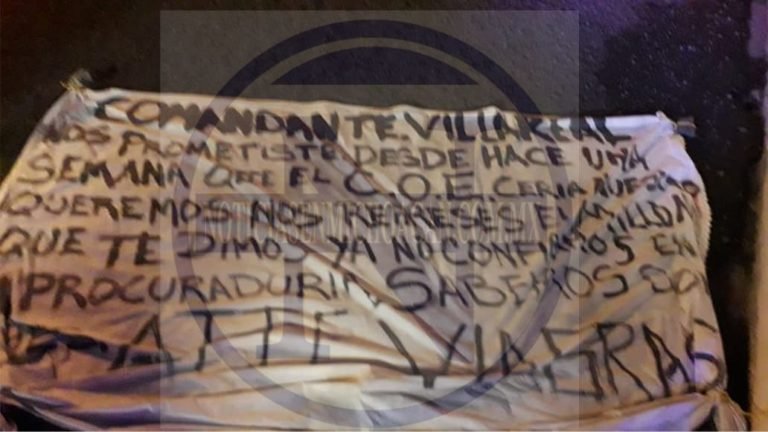 COMANDANTE. VILLAREAL
NOS PROMETISTE DESDE HACE UNA
SEMANA QUE EL C.O.E. CERIA NUESTRO
QUEREMOS NOS REPRESES EL MILLON
QUE TE DIMOS YA NO CONFIAMOS EN
PROCURADURIA SABEMOS
ATTE VIAGRAS
NOTICIASENMICHOACAN.COM.MX